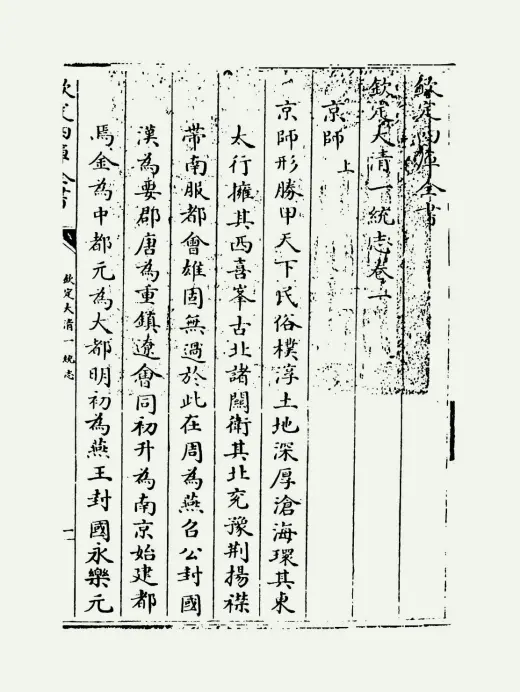 欽定四庫全書
欽定大清一統志卷一
京師上
京師形勝甲天下民俗樸淳土地深厚滄海環其東
太行擁其西喜峯古北諸關衛其北兖豫荆揚襟
帶南服都會雄固無過於此在周為燕召公封國
漢為要郡唐為重鎮遼會同初升為南京始建都
焉金為中都元為大都明初為燕王封國永樂元
欽定四庫全書
欽定大清一統志
一